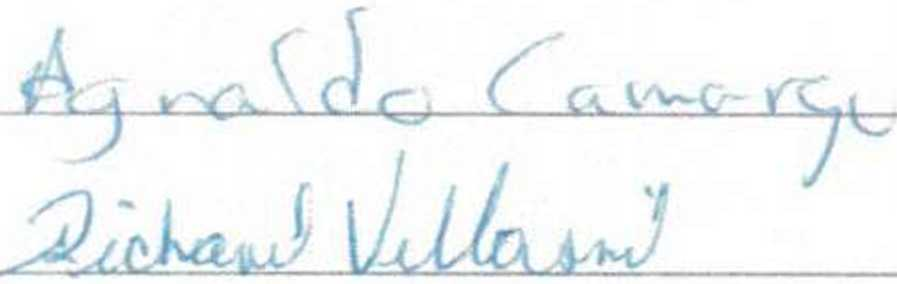 Agnaldo Camargo
Richard Villasmil